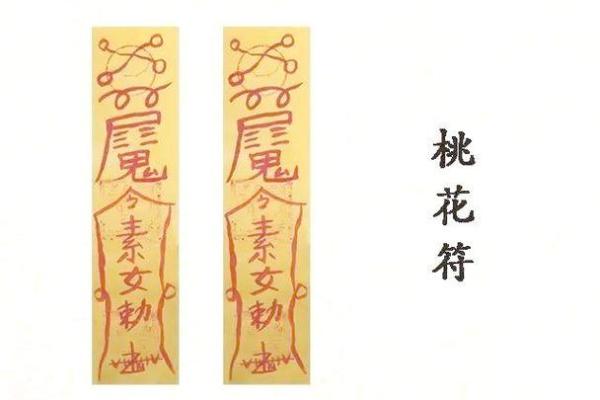 桃花符
素女勅
素女勅